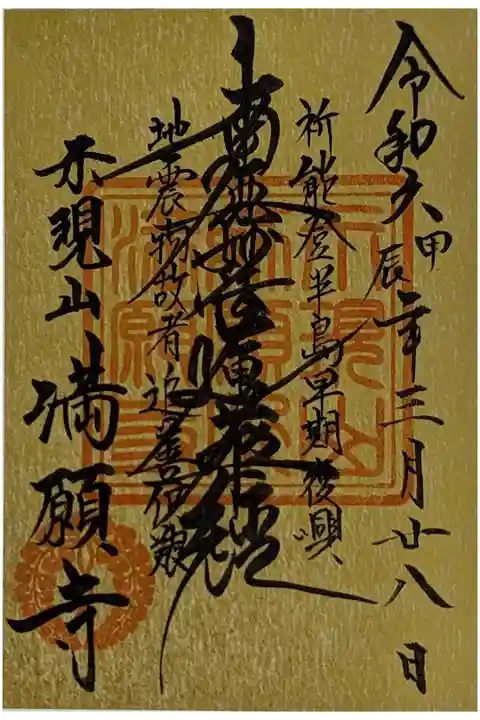 令和六甲辰年三月廿八日
祈能登半島早期復興
南無妙法蓮華経
地震物故者追善供養
示現山満願寺